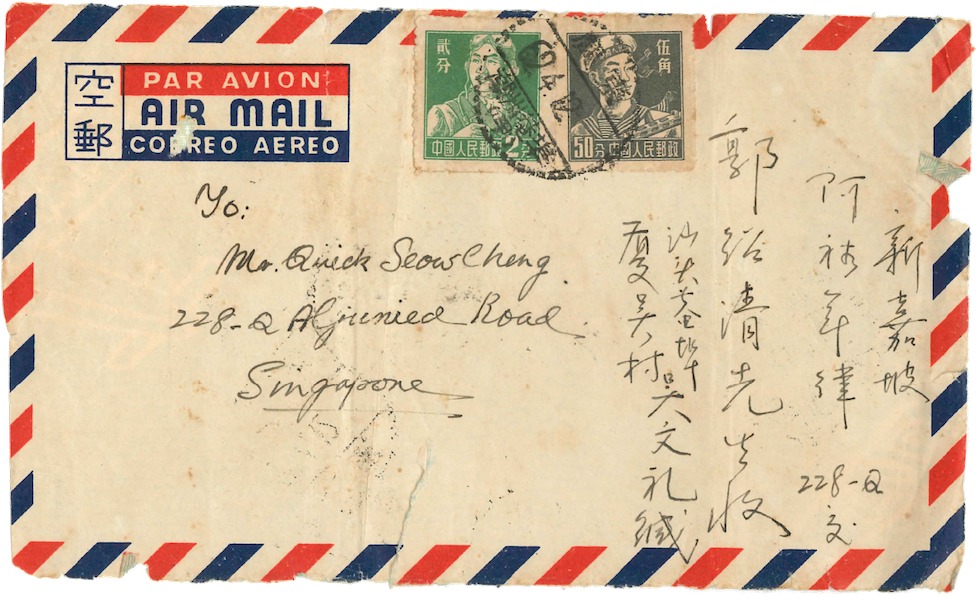 空郵
PAR AVION
AIR MAIL
CORREO AEREO
貳分
中國人民郵政 2分
伍角
50分 中國人民郵政
To:
Mr. Quick Seow Cheng
228-Q Aljunied Road
Singapore
新嘉坡
阿裕尼律 228-Q 交
郭紹清先生收
汕头 吴文礼缄
厦吴村